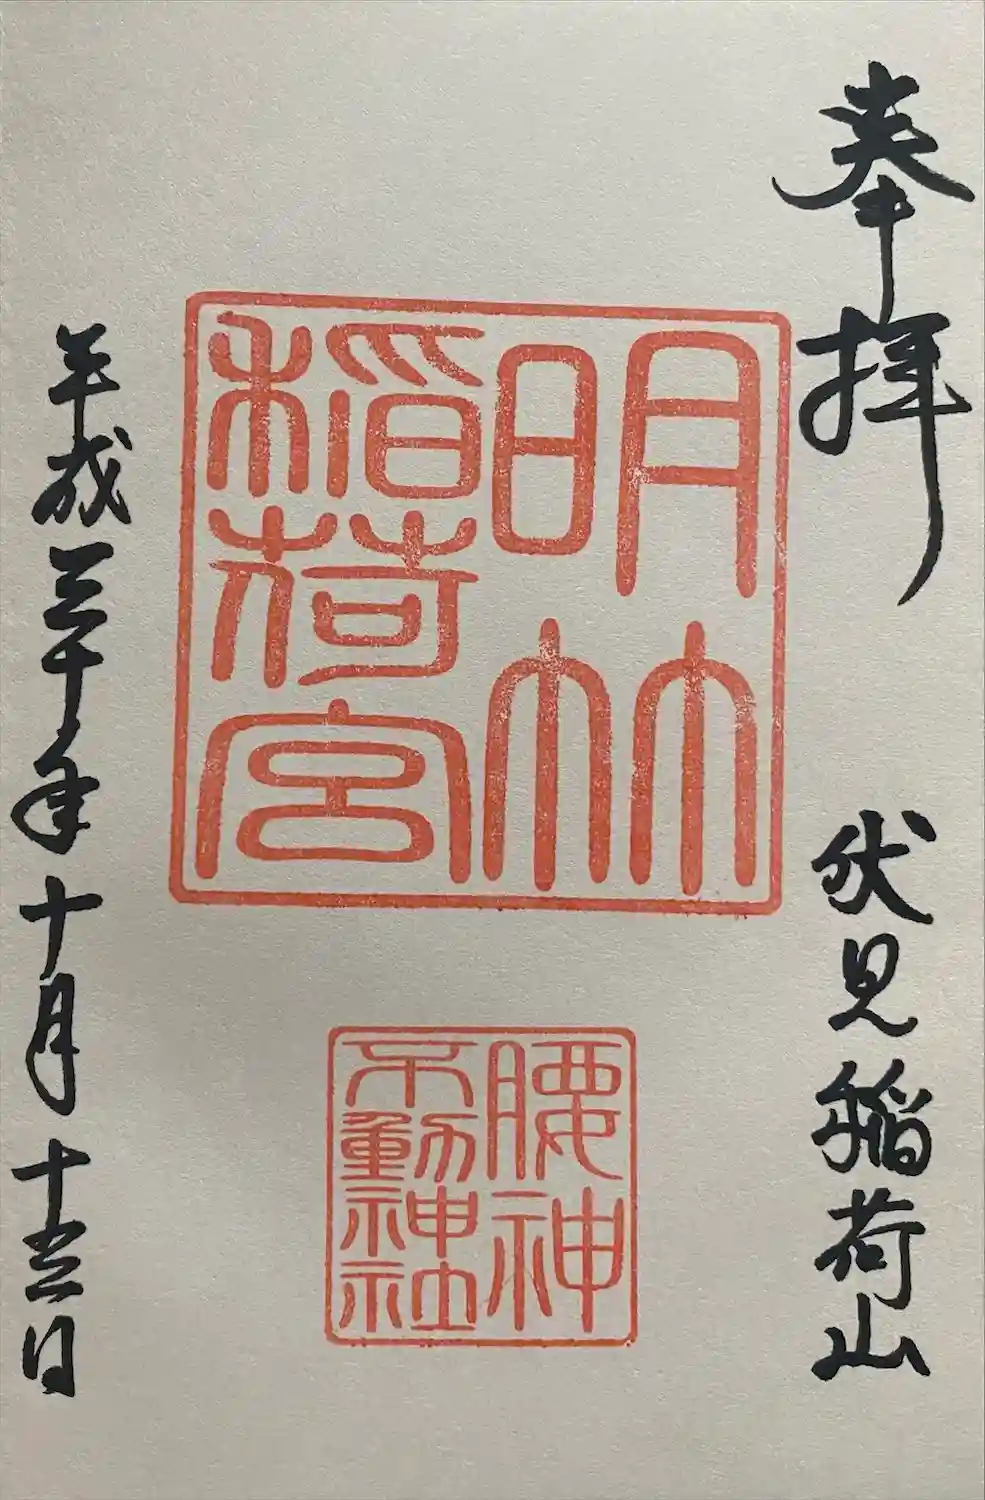 奉拝
伏見稲荷山
明竹
稲荷宮
腰神
不動神社
平成三十年十月十五日